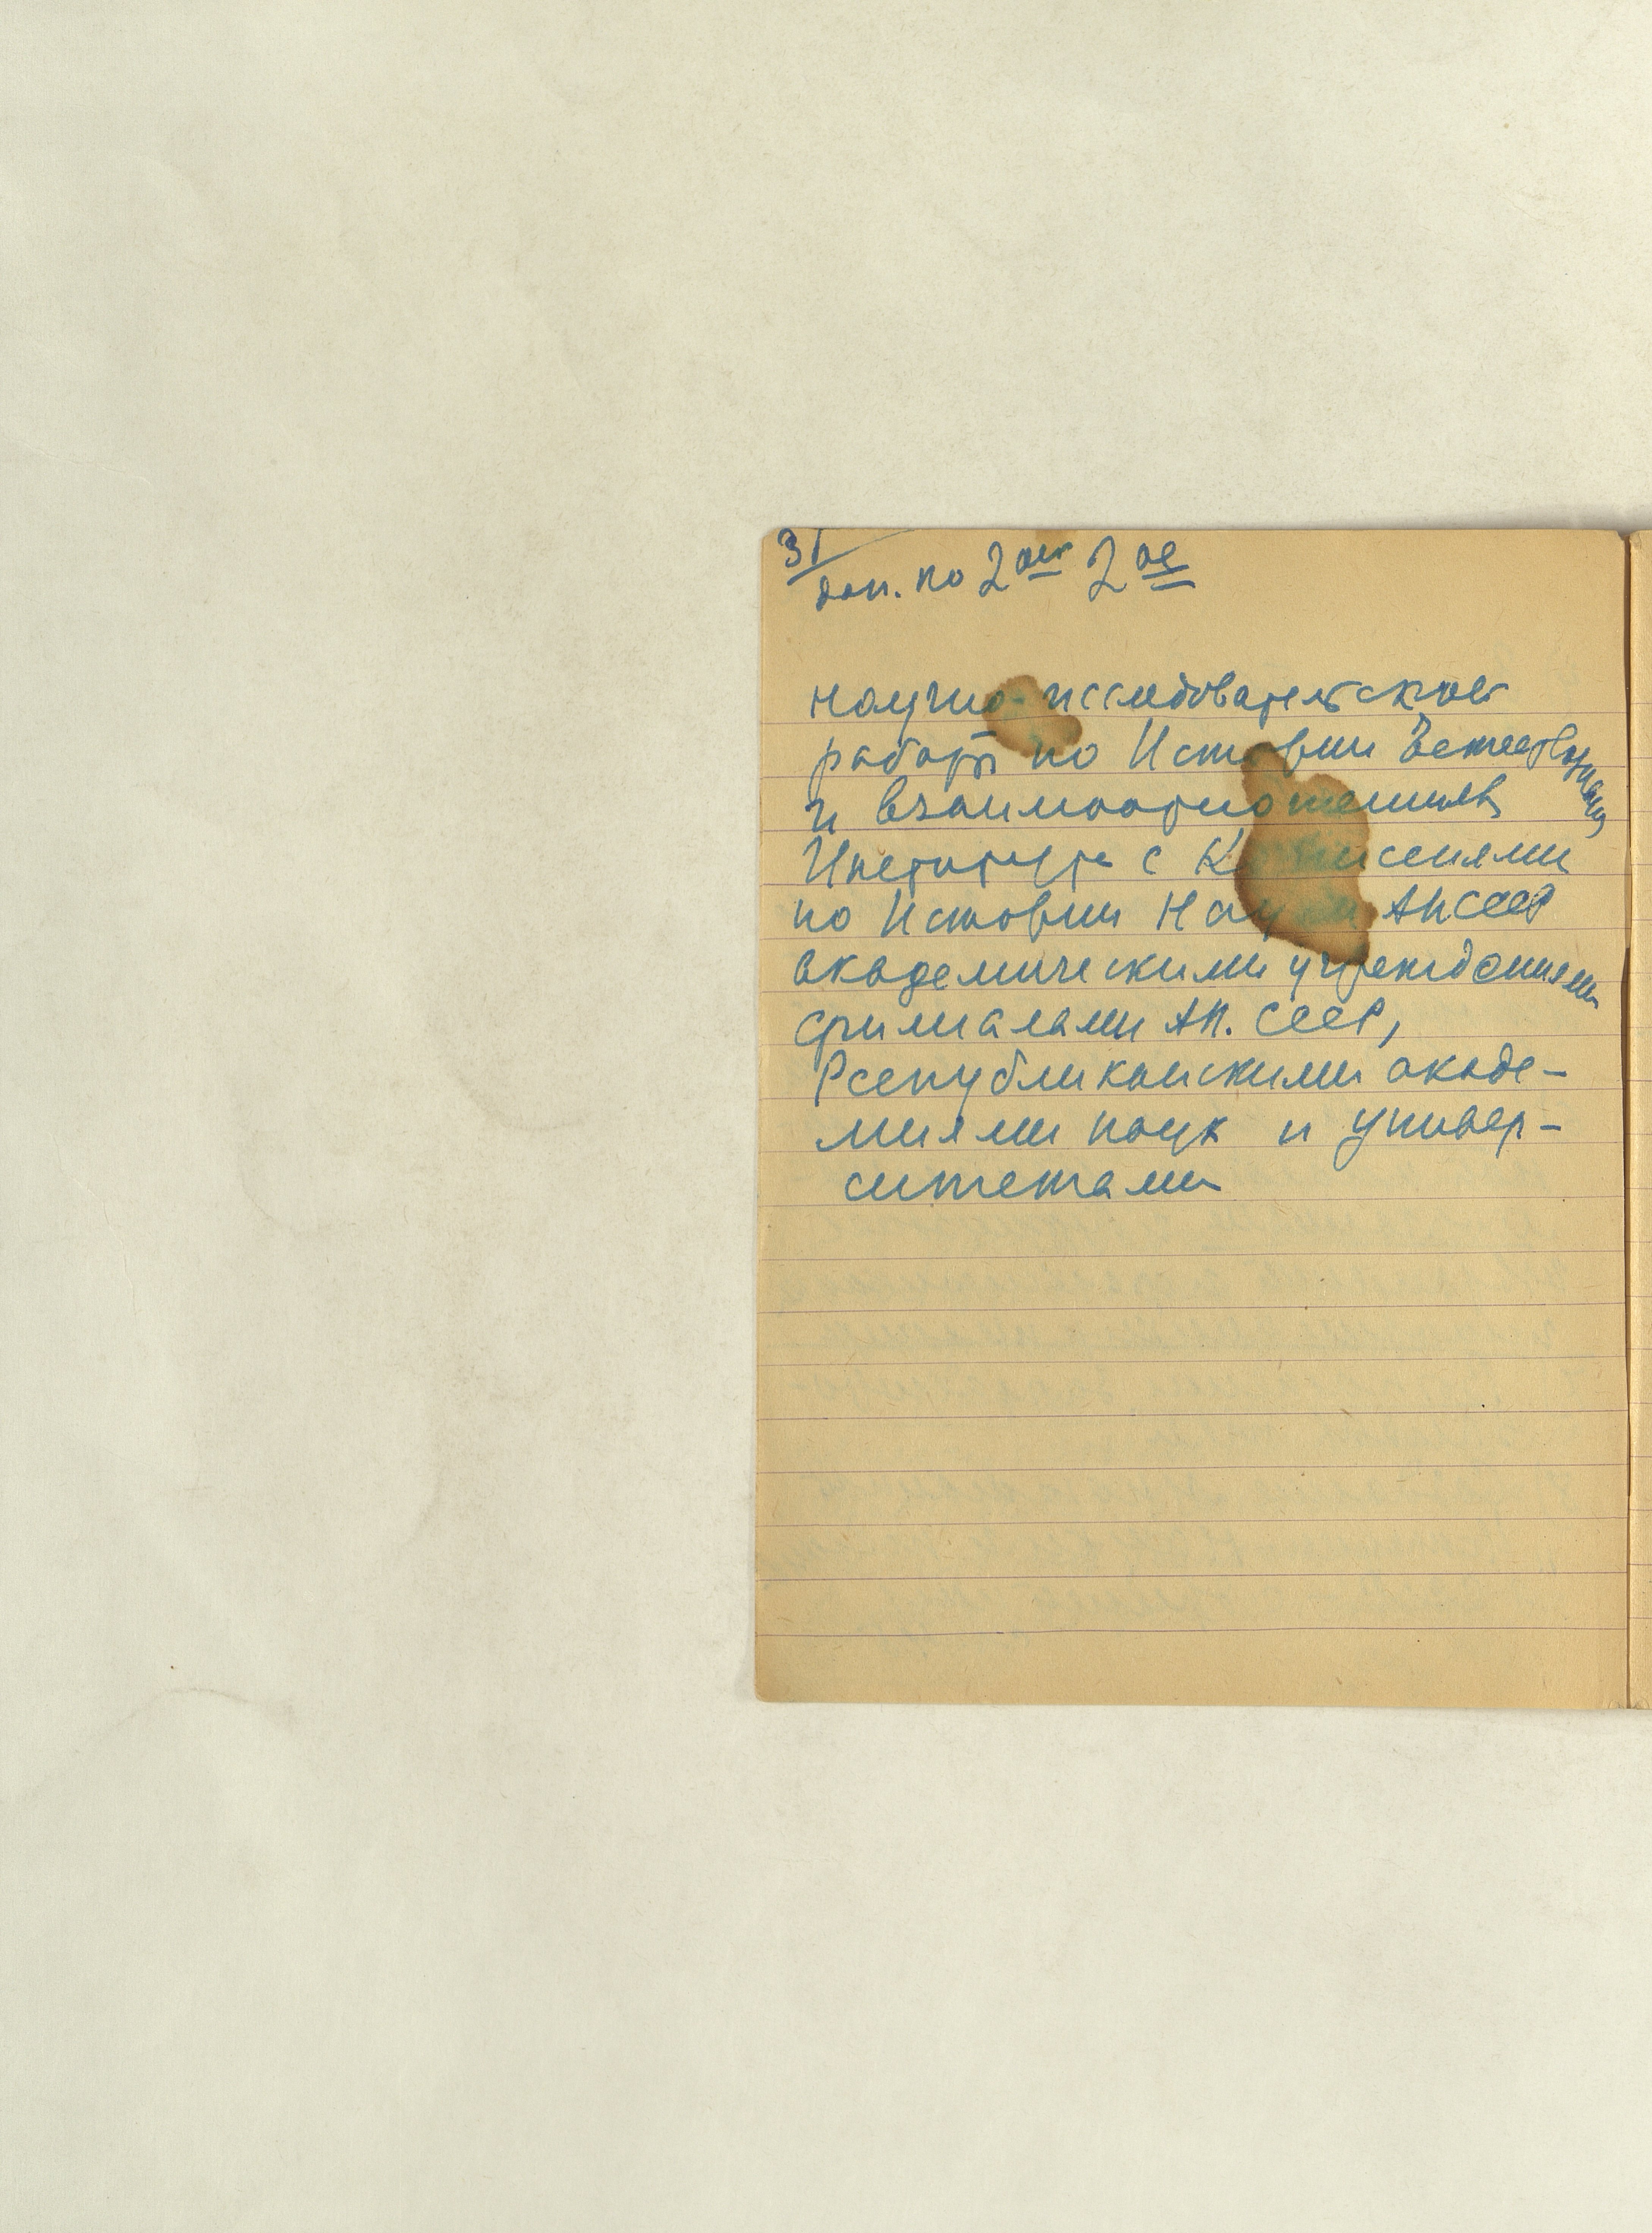 31
доп. по 2ой 2ое
научно-исследовательской
работы по Истории Естествознания
и взаимоотношения
Института с Комиссиями
по Истории Науки АН СССР
академическими учреждениями
филиалами АН. СССР,
Республиканскими акаде-
миями наук и универ-
ситетами